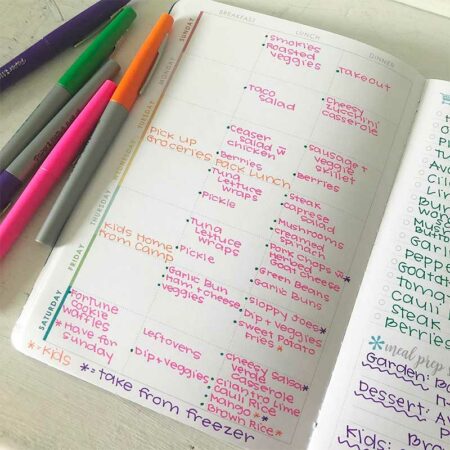 BREAKFAST
LUNCH
DINNER
SUNDAY
• Smokies
• Roasted
veggies
Takeout
MONDAY
• Taco
salad
• Cheesy
zucchini
casserole
TUESDAY
• Ceaser
salad w
chicken
• Berries
• Sausage +
veggie
skillet
• Berries
WEDNESDAY
Pick up
Groceries
Pack Lunch
• Tuna
Lettuce
wraps
• Pickle
• Steak
• Caprese
salad
• Mushrooms
• creamed
spinach
THURSDAY
Kids Home
from Camp
• Tuna
Lettuce
wraps
• Pickle
• Pork Chops w *
Herbed
Goat Cheese
• Green Beans
• Garlic Buns
FRIDAY
• Garlic Bun
• Ham + cheese
• veggies
• Sloppy Joes *
• Dip + veggies
• Sweet Potato
Fries *
SATURDAY
• Fortune
cookie
waffles
* Have for
Sunday
Leftovers
• Dip + veggies
• Cheesy Salsa *
verde
casserole *
• cilantro Lime
• Cauli Rice
• Mango *
• Brown Rice *
* = Kids
* = take from freezer
Garlic
Steak
Berries
*meal prep
Garden:
Dessert:
Kids: